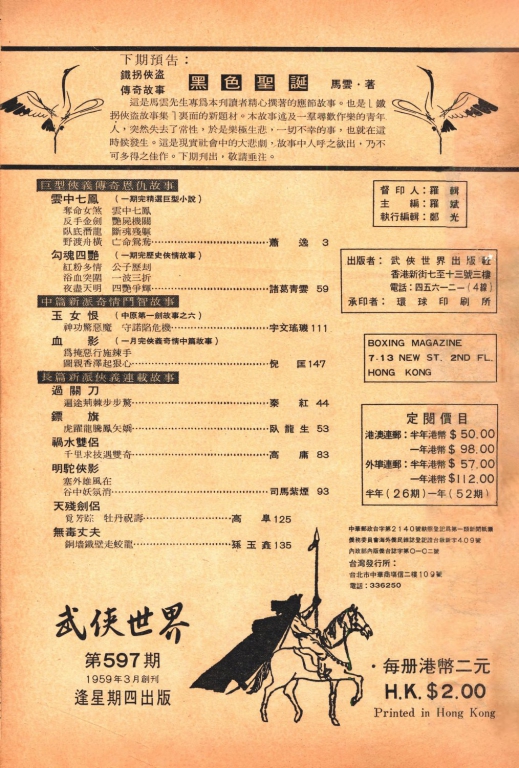 下期預告：
鐵拐俠盜
傳奇故事
黑色聖誕
馬雲・著
這是馬雲先生專爲本刋讀者精心撰著的應節故事。也是「鐵
拐俠盜故事集」裏面的新題材。本故事述及一羣尋歡作樂的青年
人，突然失去了常性，於是樂極生悲，一切不幸的事，也就在這
時候發生。這是現實社會中的大悲劇，故事中人呼之欲出，乃不
可多得之佳作。下期刋出，敬請垂注。
巨型俠義傳奇恩仇故事
雲中七鳳（一期完精選巨型小說）
奪命女煞　雲中七鳳
反手金劍　艷屍機關
臥底潛龍　斷魂殘軀
野渡舟橫　亡命鴛鴦 蕭逸 3
勾魂四艷（一期完歷史俠情故事）
紅粉多情　公子歷刧
浴血突圍　一波三折
夜盡天明　四艷爭輝 諸葛青雲 59
中篇新派奇情鬥智故事
玉女恨（中原第一劍故事之六）
神功驚惡魔　守諾陷危機 宇文瑤璣 111
血影（一月完俠義奇情中篇故事）
爲掩惡行施辣手
圖親香澤起狠心 倪匡 147
長篇新派俠義連載故事
過關刀
遍途荊棘步步驚 秦紅 44
鏢旗
虎躍龍騰鳳矢嬌 臥龍生 53
禍水雙侶
千里求技遇雙奇 高庸 83
明駝俠影
塞外雄風在
谷中妖氛消 司馬紫煙 93
天殘劍侶
覓芳踪　牡丹祝壽 高臯 125
無毒丈夫
銅墻鐵壁走蛟龍 孫玉鑫 135
督印人：羅輯
主編：羅斌
執行編輯：鄭光
出版者：武俠世界出版社
香港新街七至十三號三樓
電話：四五六一二一（4線）
承印者：環球印刷所
BOXING MAGAZINE
7-13 NEW ST. 2ND FL.
HONG KONG
定閱價目
港澳連郵：半年港幣 $ 50.00
一年港幣 $ 98.00
外埠連郵：半年港幣 $ 57.00
一年港幣 $112.00
半年（26期）一年（52期）
中華郵政台字第2140號執照登記爲第一類新聞紙類
僑務委員會海外僑民雜誌登記證台僑新字409號
內政部內版僑台誌字第〇一〇二號
台灣發行所：
台北市中華商塲信二樓109號
電話：336250
武俠世界
第597期
1959年3月創刋
逢星期四出版
・每册港幣二元
H.K. $2.00
Printed in Hong Kong